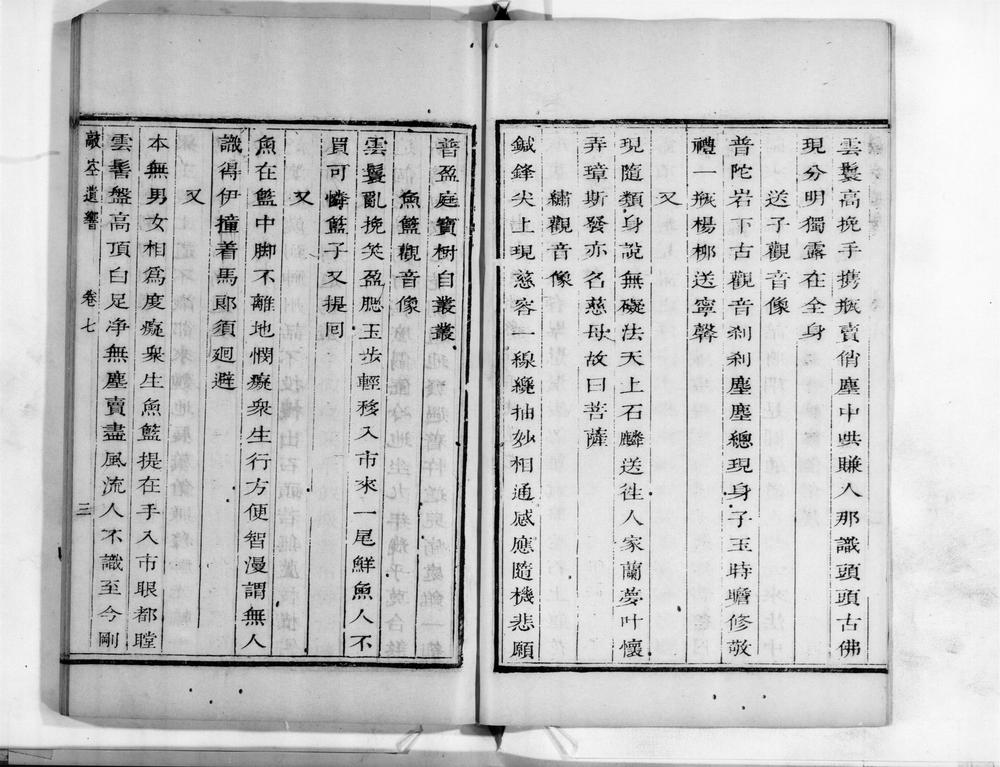 雲鬟高挽手携瓶賣俏塵中哄賺人那識頭頭古佛
現分明獨露在全身
送子觀音像
普陀岩下古觀音刹刹塵塵總現身子玉時瞻修敬
禮一瓶楊柳送寧馨
又
現隨類身說無礙法天上石麟送徃人家蘭夢叶懷
弄璋斯發亦名慈母故曰菩薩
繡觀音像
鍼鋒尖上現慈容一線纔抽妙相通感應隨機悲願
普盈庭寶樹自叢叢
魚籃觀音像
雲鬟亂挽笑盈腮玉步輕移入市來一尾鮮魚人不
買可憐籃子又提回
又
魚在籃中脚不離地憫癡衆生行方便智漫謂無人
識得伊撞着馬郎須廻避
又
本無男女相爲度癡衆生魚籃提在手入市眼都瞠
雲髻盤高頂白足净無塵賣盡風流人不識至今剛
敲空遺響 卷七 三